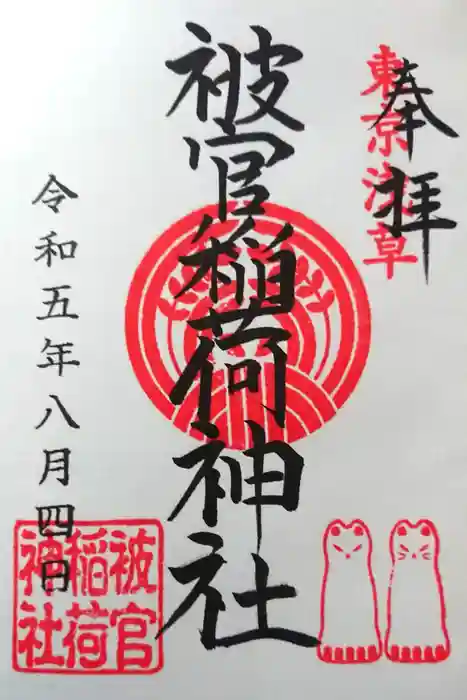 奉拝
東京浅草
被官稲荷神社
令和五年八月四日
被官
稲荷
神社